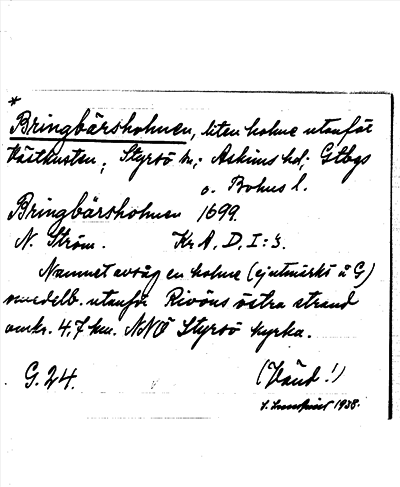 *
Bringbärsholmen, liten holme utanför
Västkusten; Styrsö sn; Askims hd; Gtbgs
o. Bohus l.
Bringbärsholmen 1699.
N. Ström. Kr A, D, I: 3.
Namnet avsåg en holme (ej utmärkt å G)
omedelb. utanför Rivöns östra strand
omkr. 4,7 km. NNÖ Styrsö kyrka.
G. 24. (Vänd!)
1938.